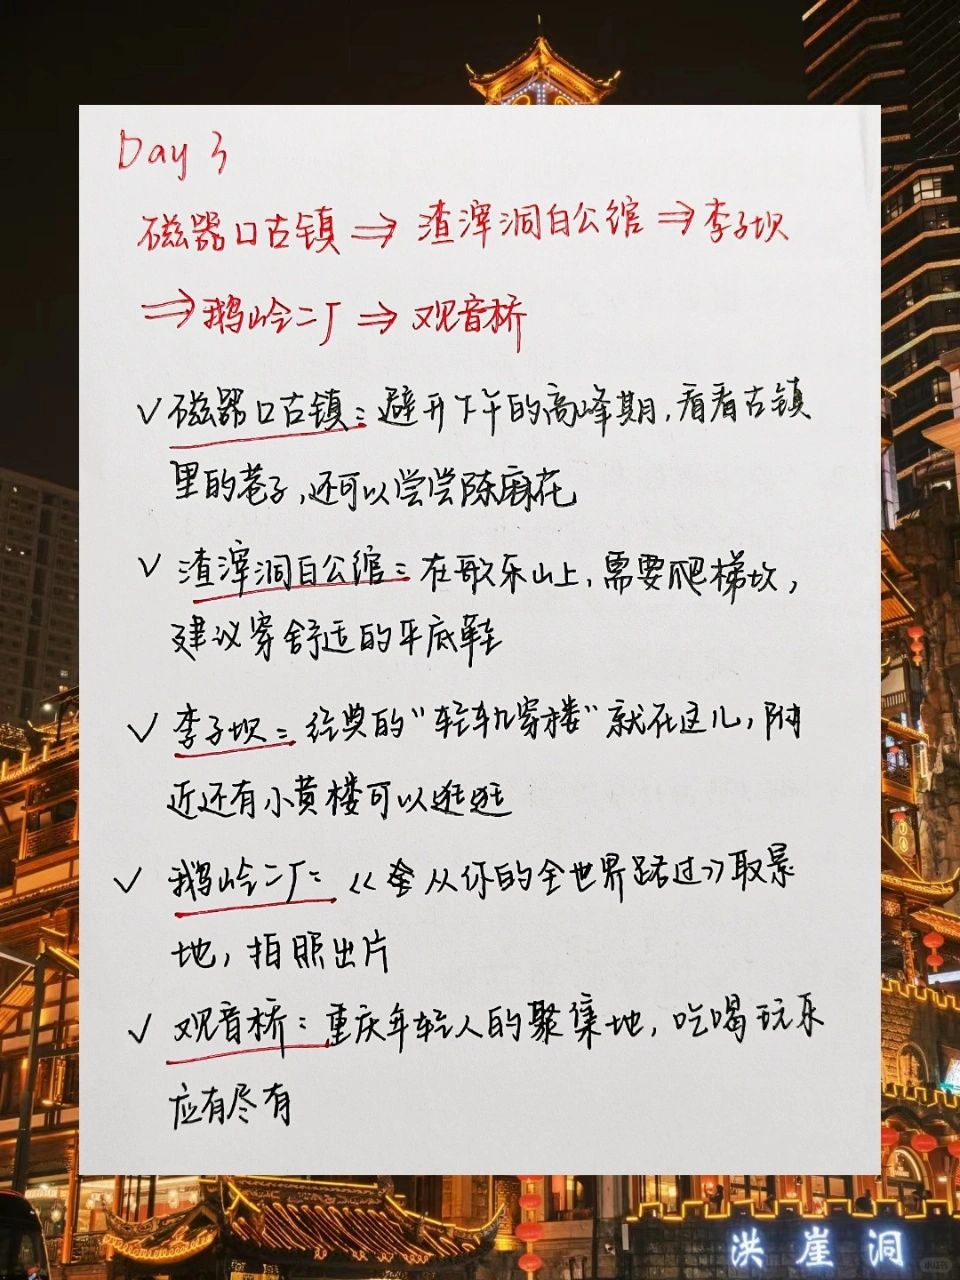 Day 3
磁器口古镇⇒渣滓洞白公馆⇒李子坝
⇒鹅岭二厂⇒观音桥
✓磁器口古镇：避开下午的高峰期，看看古镇
里的巷子，还可以尝尝陈麻花
✓渣滓洞白公馆：在歌乐山上，需要爬梯坎，
建议穿舒适的平底鞋
✓李子坝：经典的“轻轨穿楼”就在这儿，附
近还有小黄楼可以逛逛
✓鹅岭二厂：《从你的全世界路过》取景
地，拍照出片
✓观音桥：重庆年轻人的聚集地，吃喝玩乐
应有尽有
洪崖洞
小红书